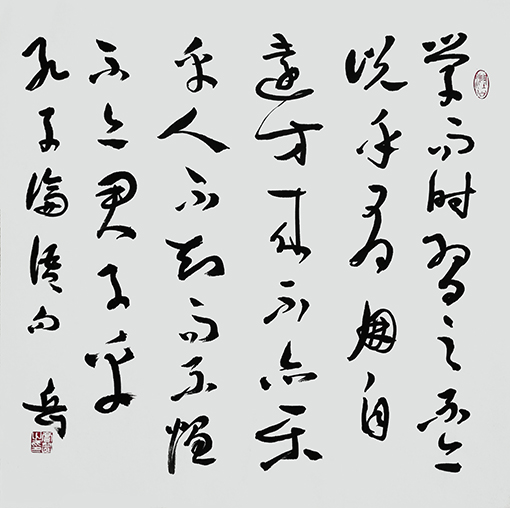 学而时習之不亦
说乎有朋自
遠方来不亦乐
乎人不知而不愠
不亦君子乎
孔子論語句 岳